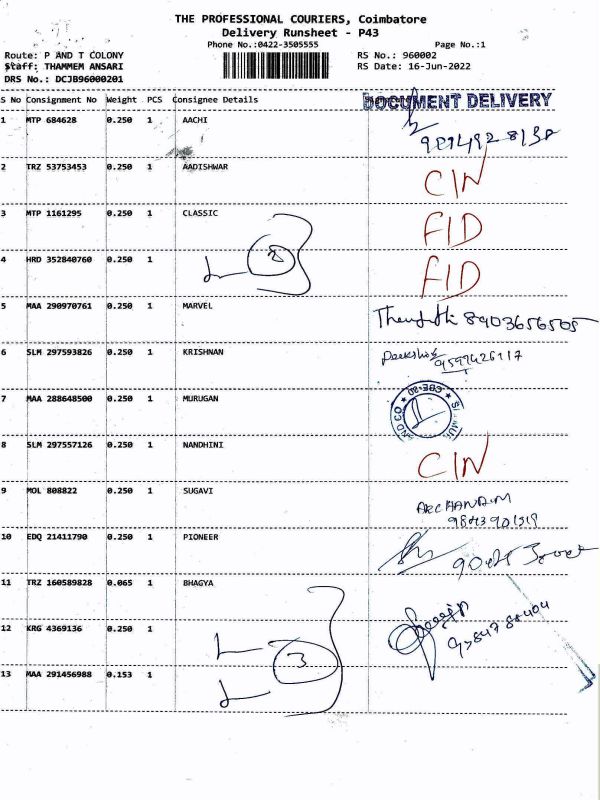 THE PROFESSIONAL COURIERS, Coimbatore
Delivery Runsheet - P43
Phone No.:0422-3505555 Page No.:1
Route: P AND T COLONY RS No.: 960002
Staff: THAMMEM ANSARI RS Date: 16-Jun-2022
DRS No.: DCJB96000201
S No Consignment No Weight PCS Consignee Details DOCUMENT DELIVERY
1 MTP 684628 0.250 1 AACHI
2 TRZ 53753453 0.250 1 AADISHWAR CIN
3 MTP 1161295 0.250 1 CLASSIC FID
4 HRD 352840760 0.250 1 FID
5 MAA 290970761 0.250 1 MARVEL 8903656505
6 SLM 297593826 0.250 1 KRISHNAN 9599426117
7 MAA 288648500 0.250 1 MURUGAN
8 SLM 297557126 0.250 1 NANDHINI CIN
9 MOL 808822 0.250 1 SUGAVI
10 EDQ 21411790 0.250 1 PIONEER
11 TRZ 160589828 0.065 1 BHAGYA
12 KRG 4369136 0.250 1
3
13 MAA 291456988 0.153 1